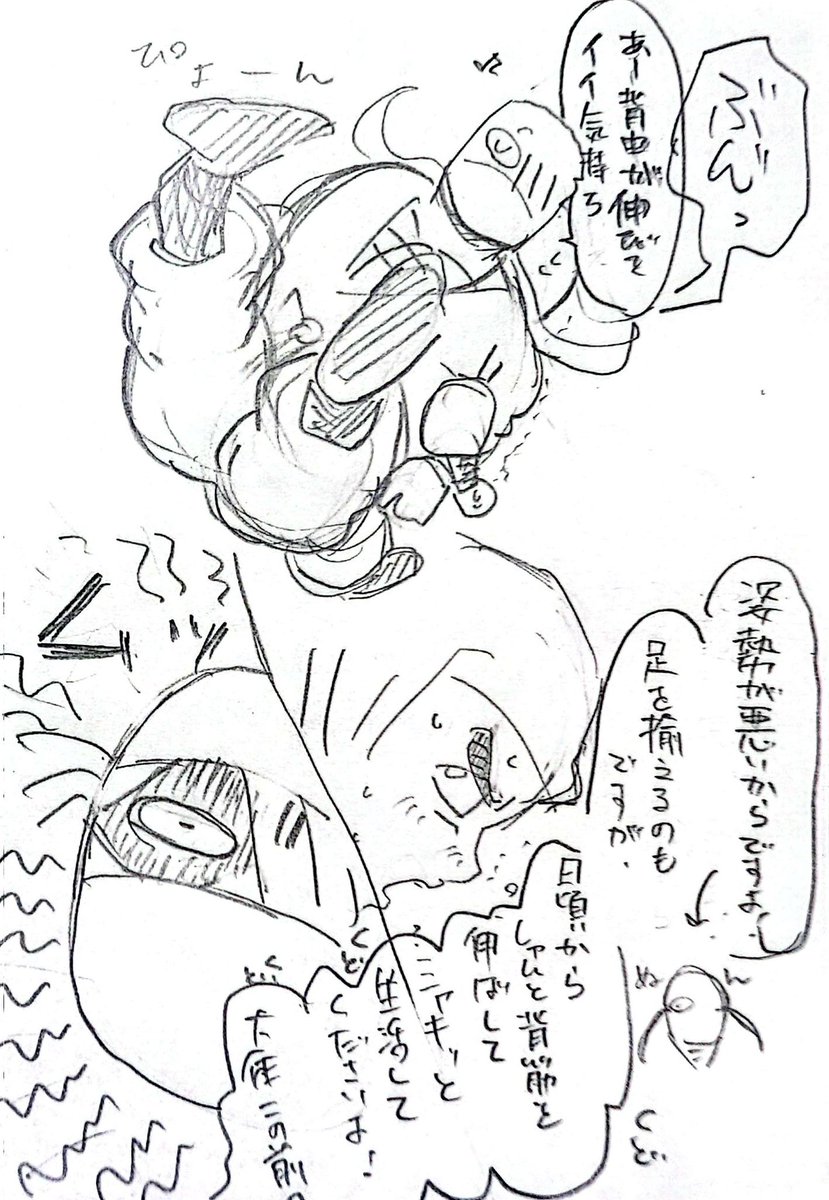 ぶんっ
あー背中が伸びて
イイ気持ち
ぴょーん
姿勢が悪いからですよ！
足を揃えるのも
ですが、
ぬん
日頃から
しゃんと背筋を
伸ばして
シャキッと
生活して
くださいよ！
大体この前
くど
くど
くど